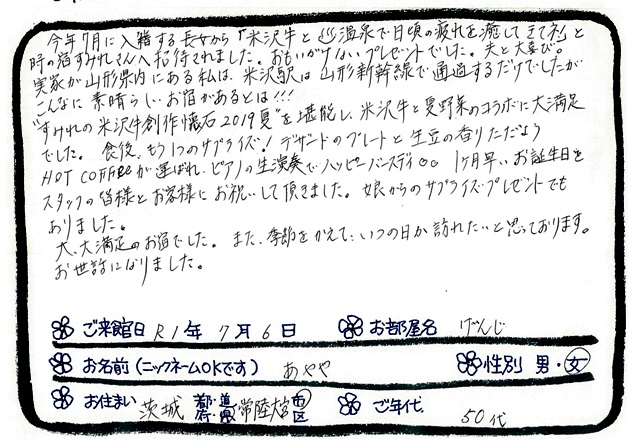 今年7月に入籍する長女から「米沢牛と♨温泉で日頃の疲れを癒してきてネ」と
時の宿すみれさんへ招待されました。おもいがけないプレゼントでした。夫と大喜び。
実家が山形県内にある私は、米沢駅は山形新幹線で通過するだけでしたが
こんなに素晴らしいお宿があるとは!!!
"すみれの米沢牛創作懐石2019夏"を堪能し、米沢牛と夏野菜のコラボに大満足
でした。食後、もう1つのサプライズ!デザートのプレートと生豆の香りただよう
HOT COFFEEが運ばれ、ピアノの生演奏でハッピーバースディ 1ヶ月早いお誕生日を
スタッフの皆様とお客様にお祝いして頂きました。娘からのサプライズプレゼントでも
ありました。
大、大満足のお宿でした。また、季節をかえて、いつの日か訪れたいと思っております。
お世話になりました。
ご来館日 R1年 7月 6日 お部屋名 げんじ
お名前(ニックネームOKです) あやや 性別 男・女
お住まい 茨城 都・道・府・県 常陸大宮 市区 ご年代 50代